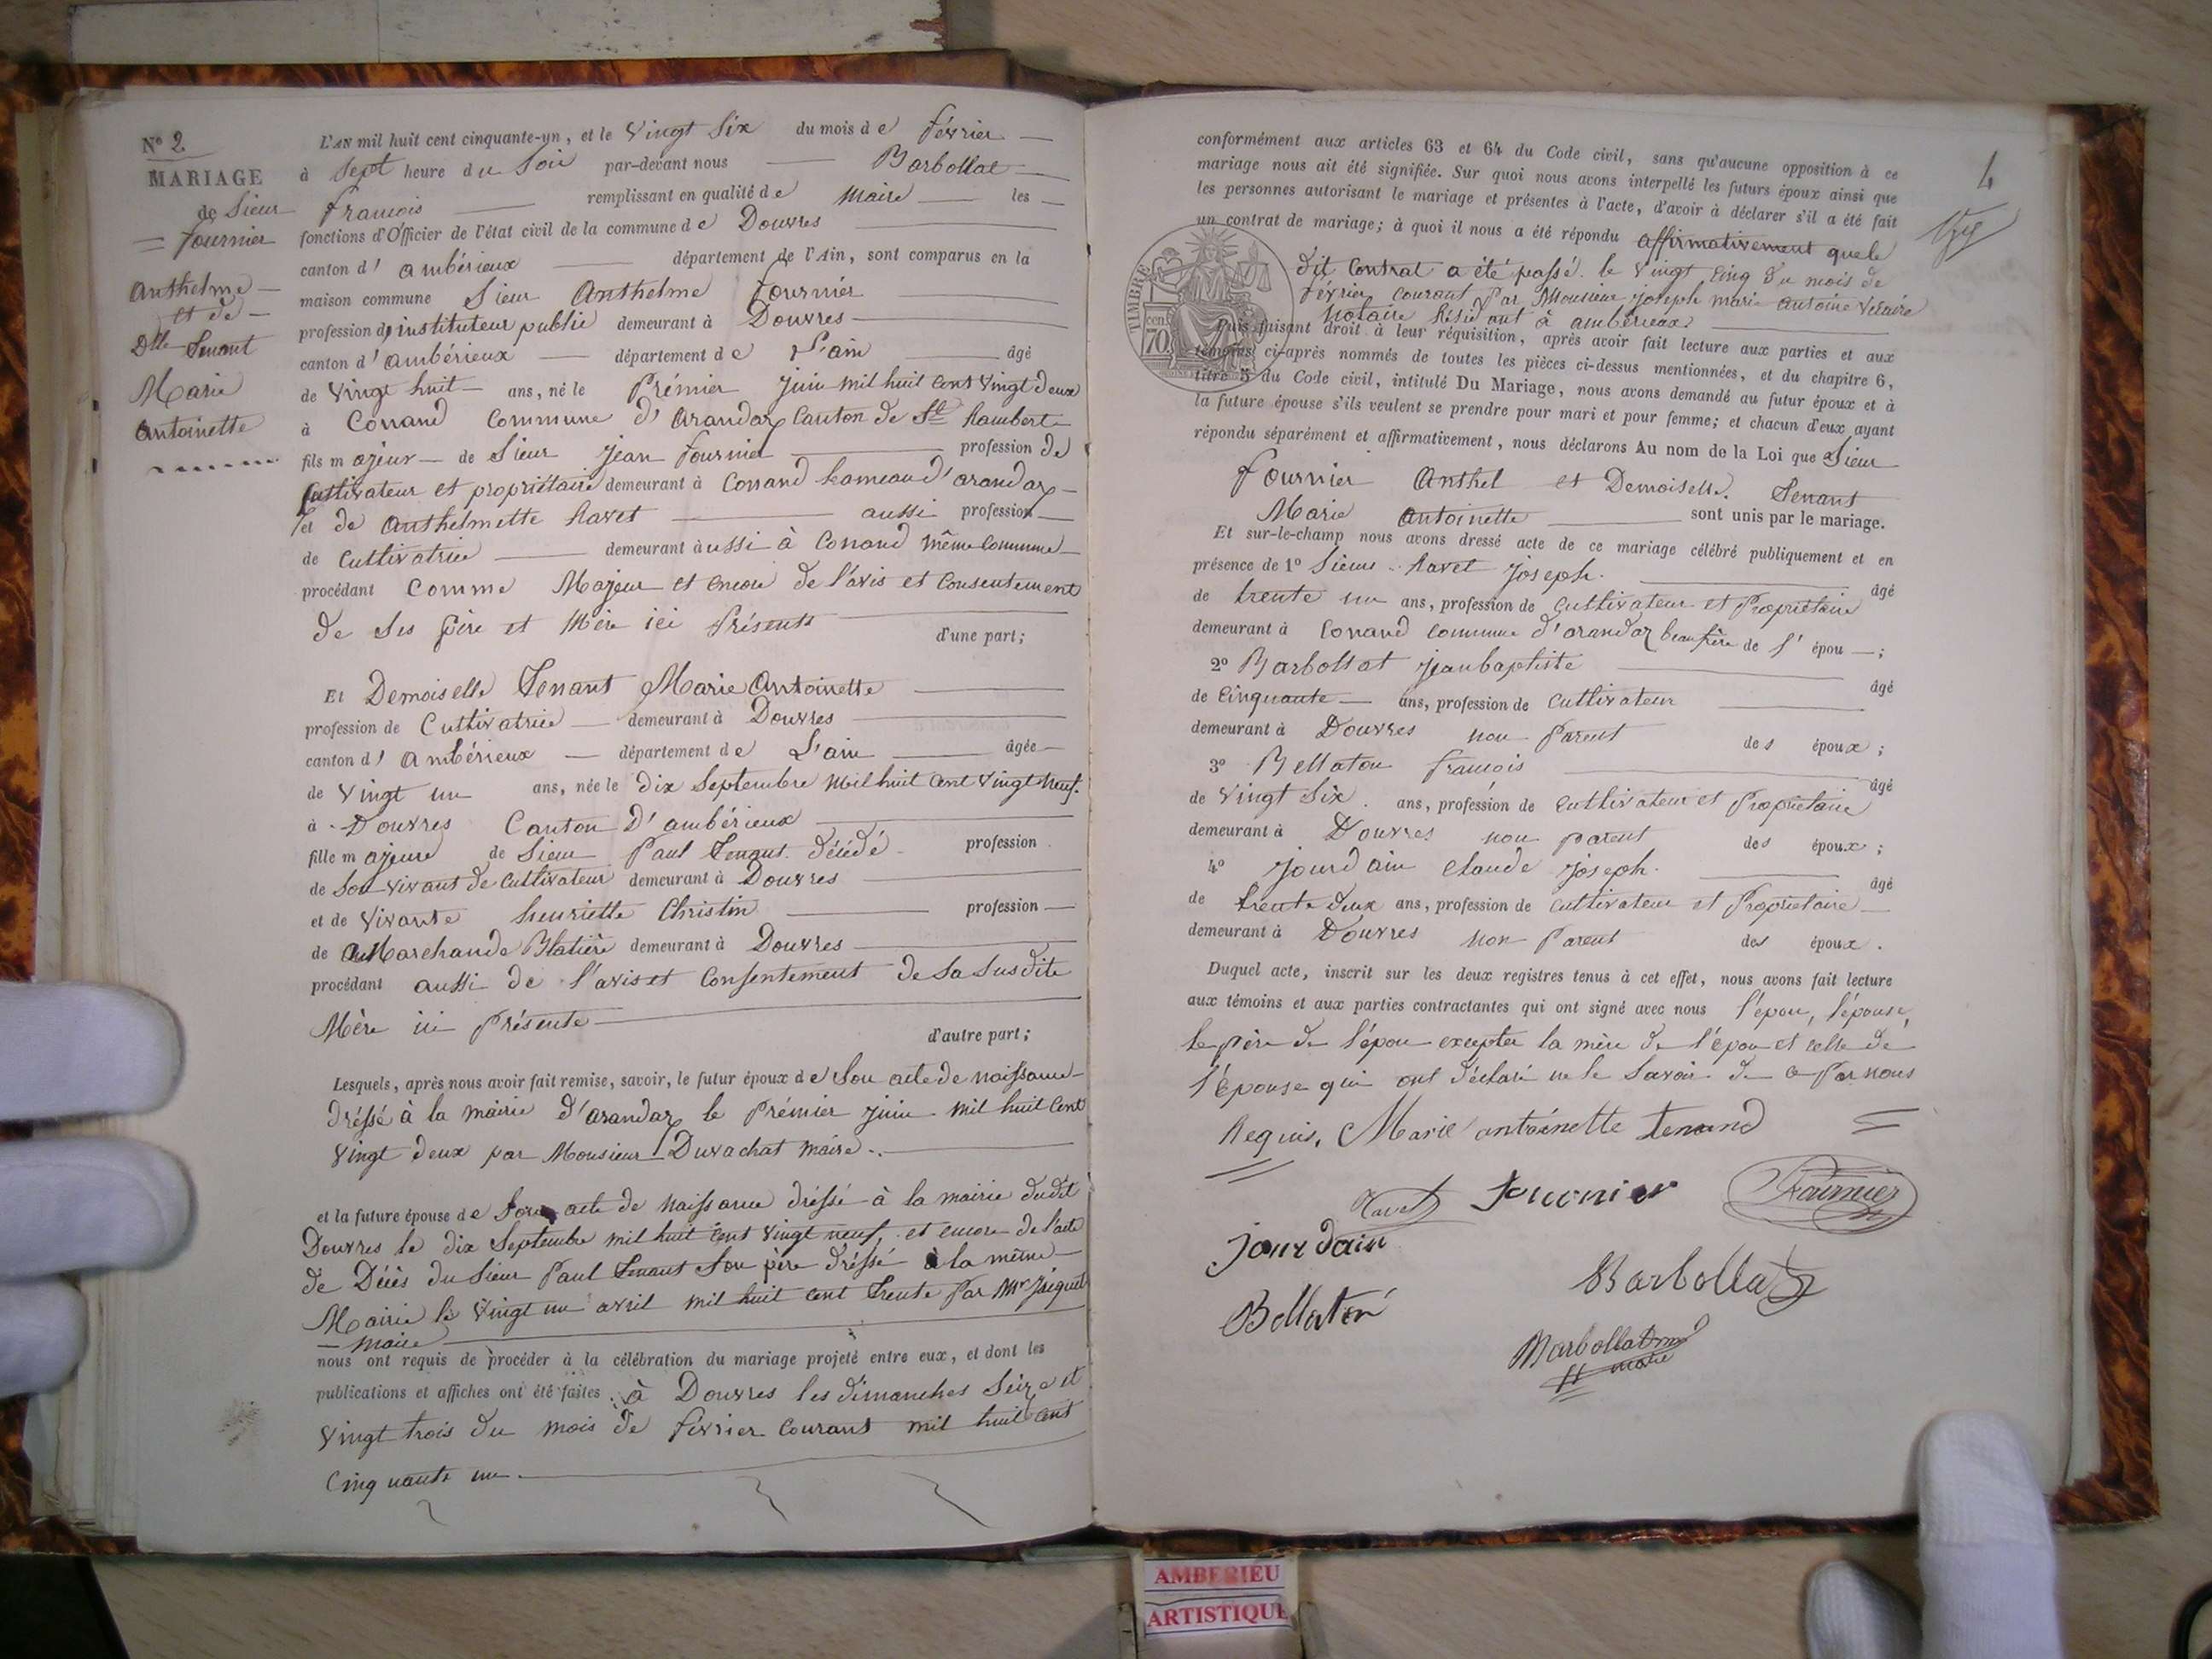 N° 2
MARIAGE
de Sieur
Fournier
Anthelme
et de
Dlle Tenant
Marie
Antoinette
L'AN mil huit cent cinquante-un, et le vingt six du mois de février
à sept heure du soir par-devant nous Barbollat
françois remplissant en qualité de Maire les
fonctions d'Officier de l'état civil de la commune de Douvres
canton d' ambérieux département de l'Ain, sont comparus en la
maison commune Sieur Anthelme fournier
profession d'instituteur public demeurant à Douvres
canton d' ambérieux département de L'ain âgé
de vingt huit ans, né le Prémier juin mil huit cent vingt deux
à Conand Commune d'arandaz Canton de St Rambert
fils majeur de Sieur jean fournier profession de
Cultivateur et propriétaire demeurant à Conand hameau d'arandaz
et de Anthelmette Ravet aussi profession
de Cultivatrice demeurant aussi à Conand même Commune
procédant Comme Majeur et encore de l'avis et Consentement
de ses père et Mère ici Présents
d'une part;
Et Demoiselle Tenant Marie Antoinette
profession de Cultivatrice demeurant à Douvres
canton d' ambérieux département de L'ain âgée
de vingt un ans, née le dix Septembre mil huit cent vingt neuf.
à Douvres Canton d'ambérieux
fille majeure de Sieur Paul Tenant décédé profession
de Son vivant de Cultivateur demeurant à Douvres
et de vivante henriette Christin profession
de Marchande Blatière demeurant à Douvres
procédant aussi de l'avis et Consentement de sa susdite
Mère ici Présente
d'autre part;
Lesquels, après nous avoir fait remise, savoir, le futur époux de Son acte de naissance
dréssé à la mairie d'arandaz le Prémier juin mil huit Cent
vingt deux par Monsieur Duvachat maire.
et la future épouse de Son acte de naissance dréssé à la mairie dudit
Douvres le dix Septembre mil huit cent vingt neuf, et encore de l'acte
de Décès du Sieur Paul Tenant Son père dréssé à la même
Mairie le vingt un avril mil huit cent trente Par Mr Jacquet
maire
nous ont requis de procéder à la célébration du mariage projeté entre eux, et dont les
publications et affiches ont été faites à Douvres les dimanches Seize et
vingt trois du mois de février Courant mil huit Cent
Cinquante un.
4
conformément aux articles 63 et 64 du Code civil, sans qu'aucune opposition à ce
mariage nous ait été signifiée. Sur quoi nous avons interpellé les futurs époux ainsi que
les personnes autorisant le mariage et présentes à l'acte, d'avoir à déclarer s'il a été fait
un contrat de mariage; à quoi il nous a été répondu affirmativement que le
dit Contrat a été passé le vingt Cinq du mois de
février courant Par Monsieur joseph marie antoine
Notaire Résidant à ambérieux
TIMBRE
70
Puis faisant droit à leur réquisition, après avoir fait lecture aux parties et aux
témoins ci-après nommés de toutes les pièces ci-dessus mentionnées, et du chapitre 6,
titre 5 du Code civil, intitulé Du Mariage, nous avons demandé au futur époux et à
la future épouse s'ils veulent se prendre pour mari et pour femme; et chacun d'eux ayant
répondu séparément et affirmativement, nous déclarons Au nom de la Loi que Sieur
fournier Anthel et Demoiselle. Tenant
Marie Antoinette sont unis par le mariage.
Et sur-le-champ nous avons dressé acte de ce mariage célébré publiquement et en
présence de 1° Sieur Ravet joseph. âgé
de trente un ans, profession de Cultivateur et Propriétaire
demeurant à Conand commune d'arandaz beau frère de l' épou ;
2° Barbollat jeanbaptiste âgé
de Cinquante ans, profession de Cultivateur
demeurant à Douvres non Parent des époux ;
3° Bellaton françois âgé
de vingt Six ans, profession de Cultivateur et Propriétaire
demeurant à Douvres non parent des époux ;
4° jourdain claude joseph. âgé
de trente deux ans, profession de Cultivateur et Propriétaire
demeurant à Douvres non Parent des époux .
Duquel acte, inscrit sur les deux registres tenus à cet effet, nous avons fait lecture
aux témoins et aux parties contractantes qui ont signé avec nous l'épou, l'épouse,
le père de l'épou excepter la mère de l'épou et celle de
l'épouse qui ont déclaré ne le Savoir de ce Par nous
Requis, Marie antoinette tenand
Ravet Fournier Fournier
jourdain
Barbollat
Bellaton
Barbollat
maire
AMBERIEU
ARTISTIQUE